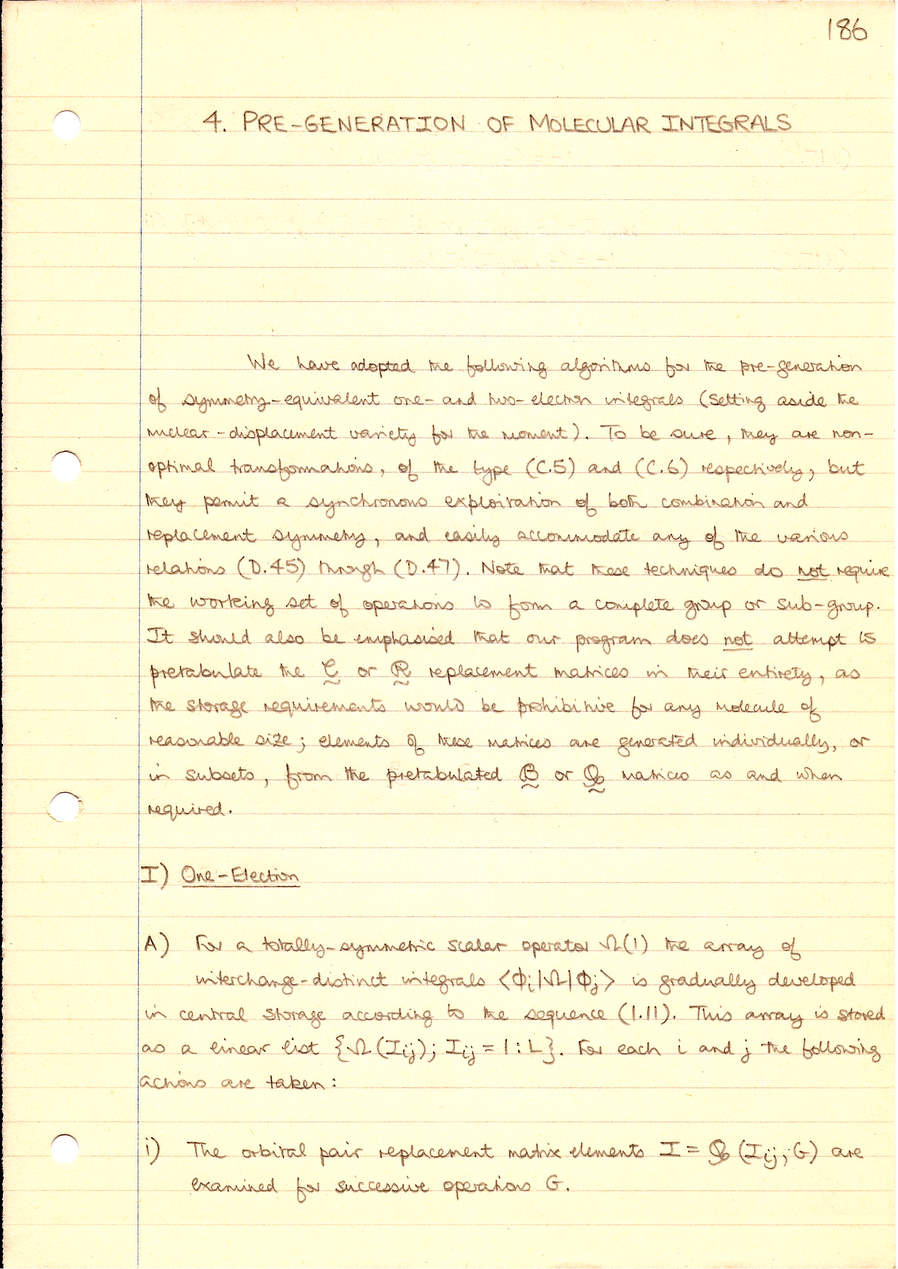 186
4. PRE-GENERATION OF MOLECULAR INTEGRALS
We have adopted the following algorithms for the pre-generation
of symmetry-equivalent one- and two-electron integrals (setting aside the
nuclear-displacement variety for the moment). To be sure, they are non-
optimal transformations, of the type (C.5) and (C.6) respectively, but
they permit a synchronous exploitation of both combination and
replacement symmetry, and easily accommodate any of the various
relations (D.45) through (D.47). Note that these techniques do not require
the working set of operations to form a complete group or sub-group.
It should also be emphasised that our program does not attempt to
pretabulate the C or R replacement matrices in their entirety, as
the storage requirements would be prohibitive for any molecule of
reasonable size; elements of these matrices are generated individually, or
in subsets, from the pretabulated B or matrices as and when
required.
I) One-Electron
A) For a totally-symmetric scalar operator Ω(1) the array of
interchange-distinct integrals <Φi|Ω|Φj> is gradually developed
in central storage according to the sequence (1.11). This array is stored
as a linear list {Ω(Iij); Iij = 1:L}. For each i and j the following
actions are taken:
i) The orbital pair replacement matrix elements I = (Iij, G) are
examined for successive operations G.